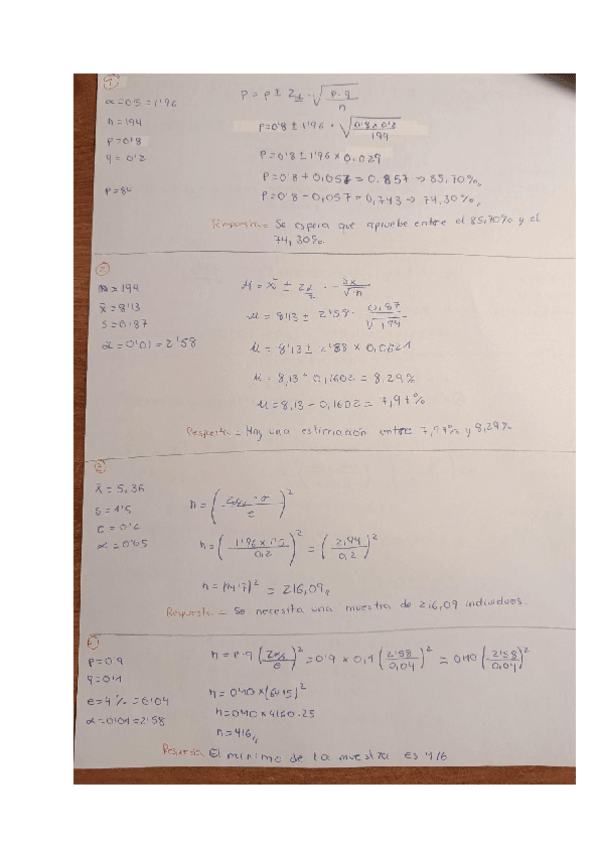 ①
α=0,5=1'96
n=194
p=0'8
q=0'2
p=8
P = p ± Zα/2 · √(p·q/n)
P=0'8 ± 1'96 · √(0'8×0'2/194)
P=0'8 ± 1'96 × 0.029
P=0'8 + 0,057 = 0.857 → 85,70%
P=0'8 - 0,057 = 0,743 → 74,30%
Respuesta = Se espera que apruebe entre el 85,70% y el
74,30%.
②
n=194
x̄=8'13
s=0'87
α=0'01=2'58
μ = x̄ ± Zα/2 · Sx/√n
μ = 8'13 ± 2'58 · 0,87/√194
μ = 8'13 ± 2'58 × 0,0621
μ = 8,13 + 0,1602 = 8.29%
μ = 8,13 - 0,1602 = 7,97%
Respuesta = Hay una estimación entre 7,97% y 8,29%
③
x̄ = 5,36
s = 1'5
e = 0'2
α = 0'05
n = (Zα/2 · σ / e)²
n = (1'96 × 1'5 / 0,2)² = (2,94 / 0,2)²
n = (14'7)² = 216,09
Respuesta = Se necesita una muestra de 216,09 individuos.
p=0.9
q=0'1
e=4% = 0'04
α=0'01=2'58
n = p·q (Zα/2 / e)² = 0'9 × 0,1 (2'58 / 0,04)² = (2'58 / 0,04)²
n= ×(64'5)²
n= ×4160.25
n=416
Respuesta El mínimo de la muestra es 416